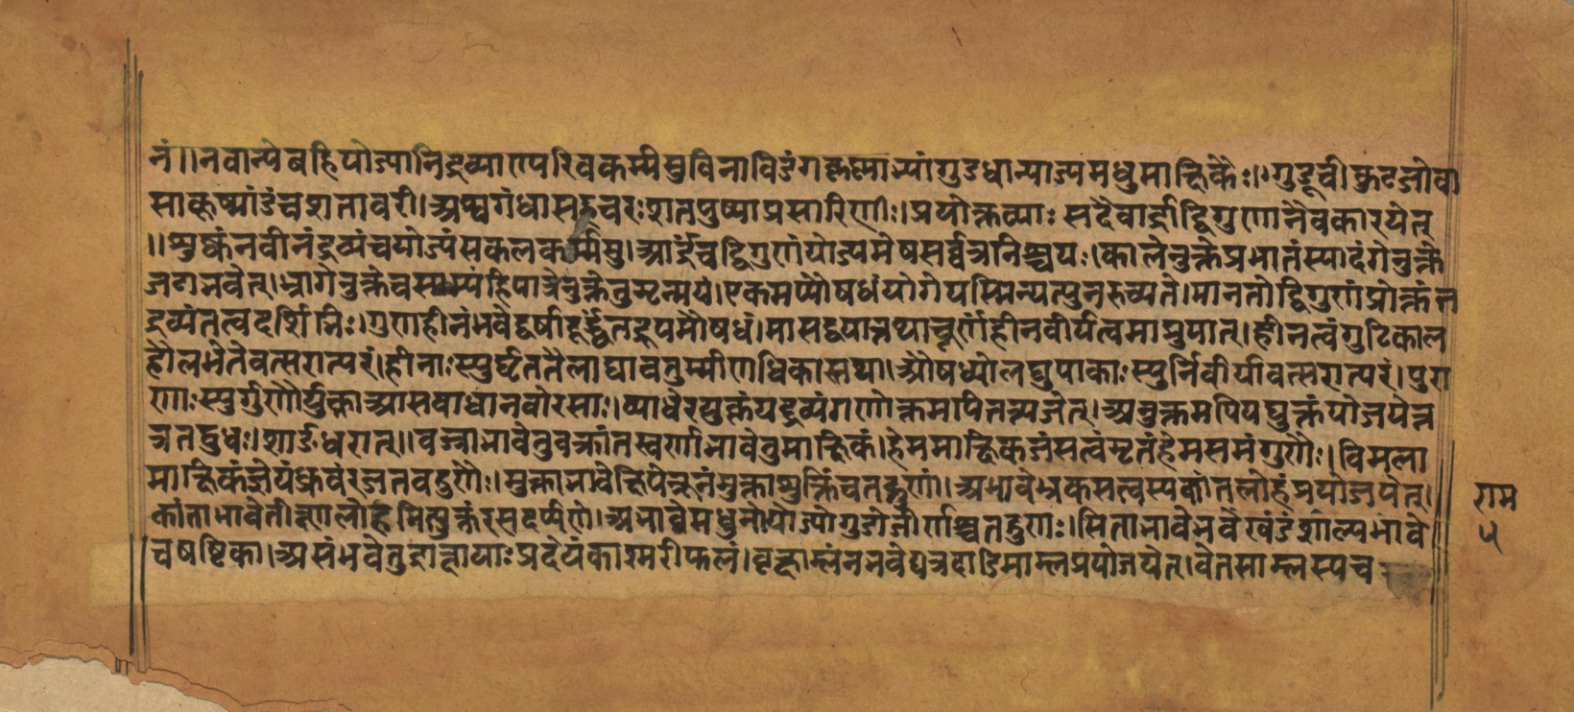 नं।।नवान्येवहियोज्यानिद्रव्याण्यपरिवकर्म्मसुविनाविडंगकृष्णाभ्यांगुडधान्याज्यमधुमाक्षिकैः।।गुडूचीकुटजोवा
साकूष्मांडंचशतावरी।अश्वगंधासहचरःशतपुष्पाप्रसारिणीः।प्रयोक्तव्याः सदैवार्द्राद्विगुणानैवकारयेत्
।।शुष्कंनवीनंद्रव्यंचयोज्यंसकलकर्म्मसु।आर्द्रंचद्विगुणंयोज्यमेषसर्व्वत्रनिश्चयः।कालेनुक्तेप्रभातंस्यादंगेनुक्ते
जटाभवेत्।भागेनुक्तेचसाम्यंहिपात्रेनुक्तेतुमृन्मयं।एकमप्यौषधंयोगेयस्मिन्यत्पुनरुच्यते।मानतोद्विगुणंप्रोक्तंत
द्रव्यंतत्वदर्शिभिः।गुणहीनंभवेद्वर्षादूर्द्ध्वंतद्रूपमौषधं।मासद्वयात्तथाचूर्णंहीनवीर्यत्वमाप्नुयात्।हीनत्वंगुटिकाले
हौलभेतेवत्सरात्परं।हीनाःस्युर्घृततैलाद्याचतुर्म्मीणधिकास्तथा।औषध्योलघुपाकाःस्युर्निर्वीर्यावत्सरात्परं।पुरा
णाःस्युर्गुणैर्युक्ताआसवाधानवोरसाः।व्याधेरयुक्तंयद्रव्यंगणोक्तमपितत्यजेत्।अनुक्तमपियद्युक्तंयोजयेत्त
त्रतद्बुधः।शार्ङधरात्।।वज्राभावेतुवक्रांतस्वर्णाभावेतुमाक्षिकं।हेममाक्षिकजंसत्वंमृतंहेमसमंगुणैः।विमला
माक्षिकंज्ञेयंध्रुवंरजतवद्गुणैः।मुक्ताभावेक्षिपेन्नूनंमुक्ताशुक्तिंचतद्गुणां।अभ्रावेभ्रकसत्वस्यकांतलोहंप्रयोजयेत्।
कांताभावेतीक्ष्णलोहमित्युक्तंरसदर्पणे।अभावेमधुनोयोज्योगुडोजीर्णश्चतद्गुणः।सिताभावेभवेत्खंडंशाल्यभावे
चषष्टिका।असंभवेतुद्राक्षायाःप्रदेयंकाश्मरीफलं।वृक्षाम्लंनभवेद्यत्रदाडिमाम्लंप्रयोजयेत्।वेतसाम्लस्यच
राम
५